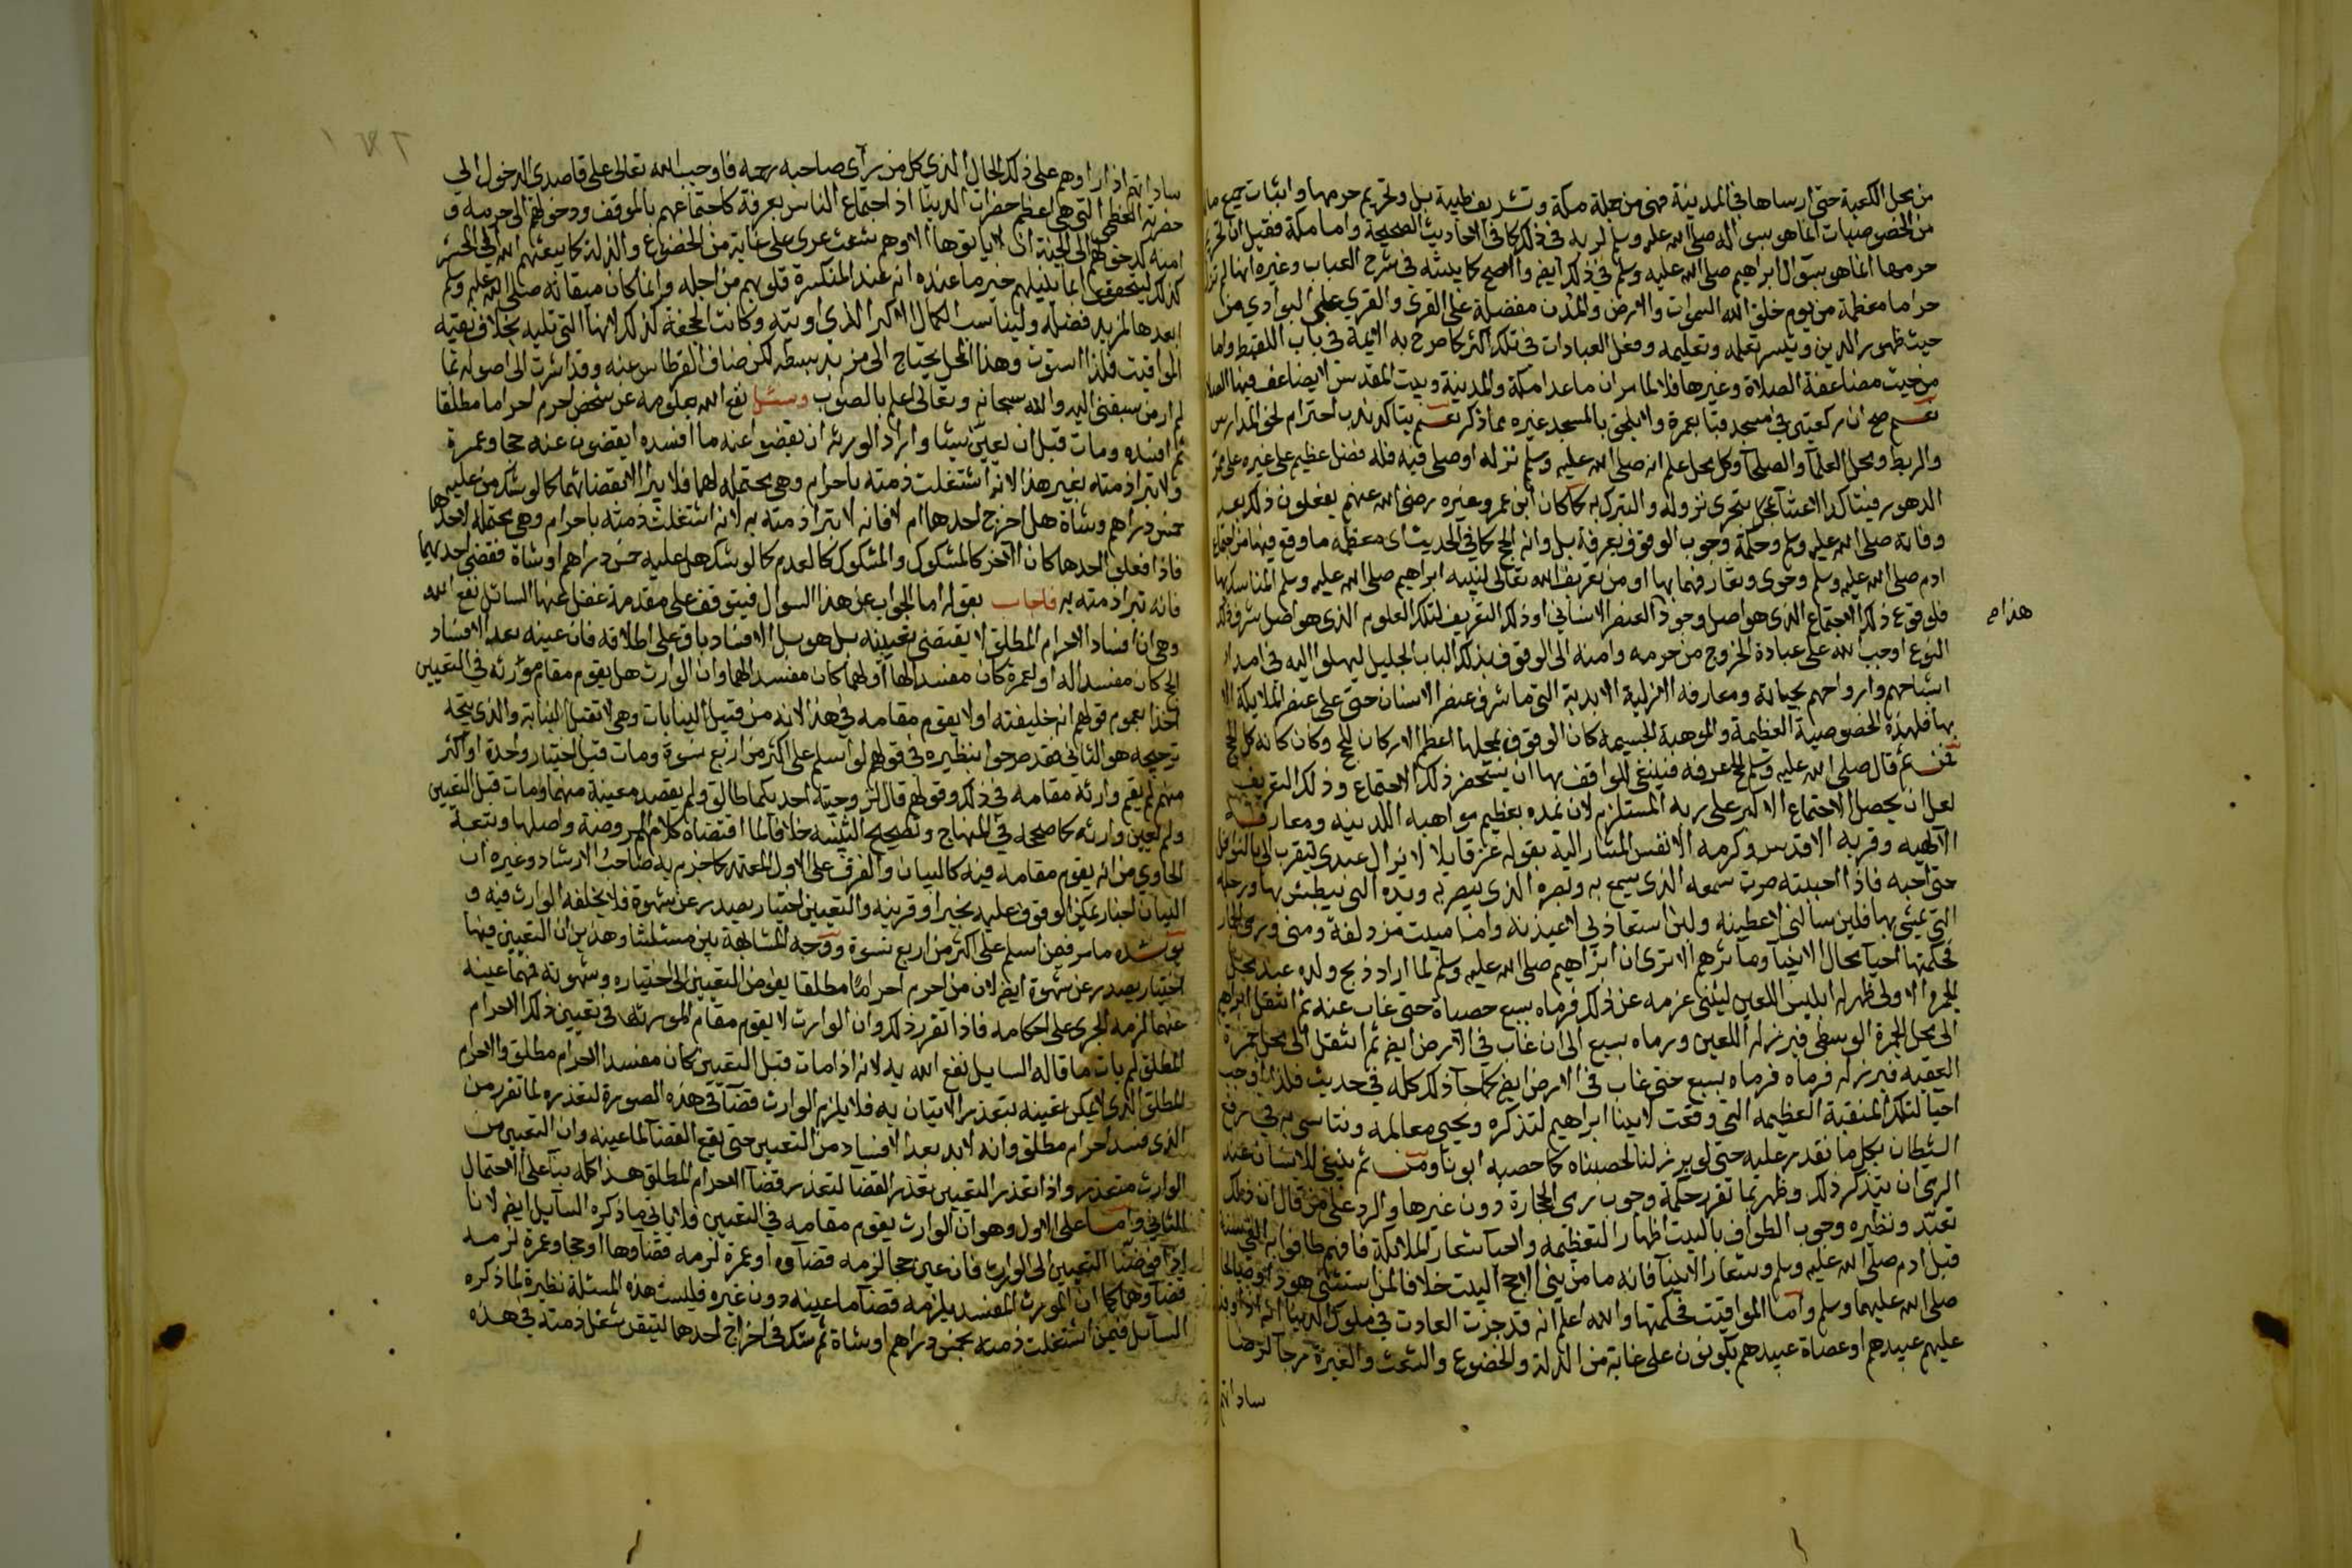 من محل الكعبة حتى ارساها في المدينة فهي من جملة مكة وتشريف طيبة بل وتحريم حرمها واثبات جميع مالها
من الخصوصيات انما هو بسؤاله صلى الله عليه وسلم لربه في ذلك كما في الاحاديث الصحيحة واما مكة فقيل ان تحريم
حرمها انما هو بسؤال ابراهيم صلى الله عليه وسلم في ذلك ايضا والاصح كما بينته في شرح العباب وغيره انها لم تزل
حراما معظمة من يوم خلق الله السموات والارض والمدن مفضلة على القرى والقرى على البوادي من
حيث ظهور الدين وتيسر تعلمه وتعليمه وفعل العبادات في تلك اكثر كما صرح به الائمة في باب اللقيط واما
من حيث مضاعفة الصلاة وغيرها فلا لما مر ان ما عدا مكة والمدينة وبيت المقدس لا يضاعف فيها الصلاة
نعم صح ان ركعتين في مسجد قبا بعمرة ولا يلحق بالمسجد غيره مما ذكر نعم يتاكد ندب احترام نحو المدارس
والربط ومحل العلمآ والصلحآ وكل محل علم انه صلى الله عليه وسلم نزله او صلى فيه فله فضل عظيم على غيره على ممر
الدهور فيتاكد الاعتنآء بتحرى نزوله والتبرك به كما كان ابن عمر وغيره رضي الله عنهم يفعلون ذلك بعد
وفاته صلى الله عليه وسلم وحكمة وجوب الوقوف بعرفة بل وانه الحج كما في الحديث اى معظمه ما وقع فيها من اجتماع
ادم صلى الله عليه وسلم وحوى وتعارفهما بها او من تعريف الله تعالى لنبيه ابراهيم صلى الله عليه وسلم المناسك بها
فلوقوع ذلك الاجتماع الذي هو اصل وجود العنصر الانساني او ذلك التعريف لتلك العلوم الذي هو اصل شرف ذلك
هذا صح
النوع اوجب الله على عباده الخروج من حرمه وامنه الى الوقوف بذلك الباب الجليل ليهلوا اليه في امداد
اشباحهم وارواحهم بجماله ومعارفه الازلية الابدية التي ما شرف عنصر الانسان حتى على عنصر الملايكة الا
بها فلهذه الخصوصية العظيمة والموهبة الجسيمة كان الوقوف بمحلها اعظم الاركان للحج وكان كانه كل الحج
فمن ثم قال صلى الله عليه وسلم الحج عرفه فينبغي للواقف بها ان يستحضر ذلك الاجتماع وذلك التعريف
لعل ان يحصل الاجتماع الاكبر على ربه المستلزم لان نمده بعظيم مواهبه اللدنيه ومعارفه
الالهيه وقربه الاقدس وكرمه الانفس المشار اليه بقوله عز قايلا لا يزال عبدى يتقرب الي بالنوافل
حتى احبه فاذا احببته صرت سمعه الذي يسمع به وبصره الذي يبصر به ويده التي يبطش بها ورجله
التي يمشي بها فلين سالني لاعطينه ولئن استعاذ بي لاعيذنه وامـا مبيت مزدلفة ومنى ورمي الجمار
فحكمتها احيآ محال الانبيآ ومآثرهم الا ترى ان ابراهيم صلى الله عليه وسلم لما اراد ذبح ولده عند محل
الجمرة الاولى ظهر له ابليس اللعين ليثني عزمه عن ذلك فرماه بسبع حصياة حتى غاب عنه ثم انتقل ابراهيم
الى محل الجمرة الوسطى فبرز له اللعين ورماه بسبع الى ان غاب في الارض ايضا ثم انتقل الى محل جمرة
العقبه فبرز له فرماه فرماه بسبع حتى غاب في الارض ايضا كما جآ ذلك كله في حديث فلذا اوجب
احيا لتلك المنقبة العظيمه التي وقعت لابينا ابراهيم لتذكره ويحيى معالمه ونتاسى به في رفع
الشيطان بكل ما نقدر عليه حتى لو برز لنا لحصبناه كما حصبه ابونا ومن ثم ينبغي للانسان عند
الرمي ان يتذكر ذلك وظهر بما تقرر حكمة وجوب رمي الحجارة دون غيرها والرد على من قال ان ذلك
تعبد ونظيره وجوب الطواف بالبيت اظهار التعظيمه واحيآ شعار الملائكة فانهم طافوا به
قبل ادم صلى الله عليه وسلم وشعار الانبيآ فانه ما من نبي الا حج البيت خلافا لمن استثنى هود او صالحا
صلى الله عليهما وسلم وامـا المواقيت فحكمتها والله اعلم انه قد جرت العادت في ملوك الدنيا انه اذا وفد
عليهم عبيدهم او عصاة عبيدهم يكونون على غاية من الذلة والخضوع والشعث والغبرة مرجآ لرضا
ساداتهم
١٤٢
ساداتهم اذا راوهم على ذلك الحال الذي كل من رآى صاحبه رحمه فاوجب الله تعالى على قاصدى الدخول الى
حضرته العظمى التي هي اعظم حضرات الدنيا اذ اجتماع الناس بعرفة كاجتماعهم بالموقف ودخولهم الى حرمه و
امنه كدخولهم الى الجنة ان لا ياتوها الا وهم شعث عرى على غاية من الخضوع والذلة كما يبعثهم الله في الحشر
كذلك ليتحققوا انما ينيلهم خير ما عنده انه عند المنكسرة قلوبهم من اجله وانما كان ميقاته صلى الله عليه وسلم
ابعدها لمزيد فضله وليناسب الكمال الاكبر الذي اوتيه وكانت الجحفة كذلك لانها التي تليه بخلاف بقية
المواقيت فلذا استوت وهذا المحل يحتاج الى مزيد بسط لكن ضاق القرطاس عنه وقد اشرت الى اصوله بما
لم ار من سبقني اليه والله سبحانه وتعالى اعلم بالصواب وسئل نفع الله بعلومه عن شخص احرم احراما مطلقا
ثم افسده ومات قبل ان يعين شيئا واراد الورثه ان يقضوا عنه ما افسده ايقضون عنه حجا وعمرة
ولا تبرا ذمته بغير هذا لانه اشتغلت ذمته باحرام وهي محتمله لهما فلا يبرا الا بقضائهما كما لو شك من عليه
خمس دراهم وشاة هل اخرج احدهما ام لا فانه لا تبرا ذمته به لانه اشتغلت ذمته باحرام وهي محتمله لاحدهما
فاذا فعلى احدهما كان الآخر كالمشكوك والمشكوك كالعدم كما لو شك هل عليه خمس دراهم او شاة فقضى احديهما
فانه تبرا ذمته به فاجاب بقوله اما الجواب عن هذا السوال فيتوقف على مقدمة غفل عنها السائل نفع الله
وهي ان افساد الاحرام المطلق لا يقتضي تعيينه بل هو بل الافساد باق على اطلاقه فان عينه بعد الافساد
لحج كان مفسدا له او لعمرة كان مفسدا لها او لهما كان مفسدا لهما وان الوارث هل يقوم مقام مورثه في التعيين
اخذا بعموم قولهم انه خليفته او لا يقوم مقامه في هذا لانه من قبيل النيابات وهي لا تقبل النيابة والذي يتجه
ترجيحه هو الثاني فقد صرحوا بنظيره في قولهم لو اسلم على اكثر من اربع نسوة ومات قبل اختيار واحدة او اكثر
منهم لم يقم وارثه مقامه في ذلك وقولهم قال لزوجتيه احديكما طالق ولم يقصد معينة منهما ومات قبل التعيين
ولم يعين وارثه كما صححه في المنهاج وتصحيح التنبيه خلافا لما اقتضاه كلام الروضة واصلها وتبعه
الحاوي من انه يقوم مقامه فيه كالبيان والفرق على الاول المعتمد كما جزم به صاحب الارشاد وغيره ان
البيان اخبار يمكن الوقوف عليه بخبر او قرينه والتعيين اختيار يصدر عن شهوة فلا يخلفه الوارث فيه و
يرشده ما مر فيمن اسلم على اكثر من اربع نسوة ووجه المشابهة بين مسئلتنا وهذين ان التعيين فيها
اختيار يصدر عن شهوة ايضا لان من احرم احراما مطلقا يفوض التعيين الى اختياره وشهوته فمهما عينه
منهما لزمه الجرى على احكامه فاذا تقرر ذلك وان الوارث لا يقوم مقام المورث في تعيين ذلك الاحرام
المطلق لم يات ما قاله السايل نفع الله به لانه اذا مات قبل التعيين كان مفسدا لاحرام مطلق والاحرام
المطلق الذي لا يمكن تعيينه يتعذر الاتيان به فلا يلزم الوارث قضآ في هذه الصورة لتعذره لما تقرر من
الذي فسد احرام مطلق وانه لابد بعد الافساد من التعيين حتى يقع القضآ لما عينه وان التعيين من
الوارث متعذر واذا تعذر التعيين تعذر القضآ لتعذر قضآ الاحرام المطلق هذا كله بنآ على الاحتمال
الثاني وامـا على الاول وهو ان الوارث يقوم مقامه في التعيين فلا ياتي ما ذكره السآيل ايضا لانا
اذا فوضنا التعيين الى الوارث فان عين حجا لزمه قضآوه او عمرة لزمه قضآوها او حجا وعمرة لزمه
قضآوهما كما ان المورث المفسد يلزمه قضآ ما عينه دون غيره فليست هذه المسئلة نظيرة لما ذكره
السآيل فيمن اشتغلت ذمته بخمس دراهم او شاة ثم شك في اخراج احدهما لتيقن شغل ذمته في هذه